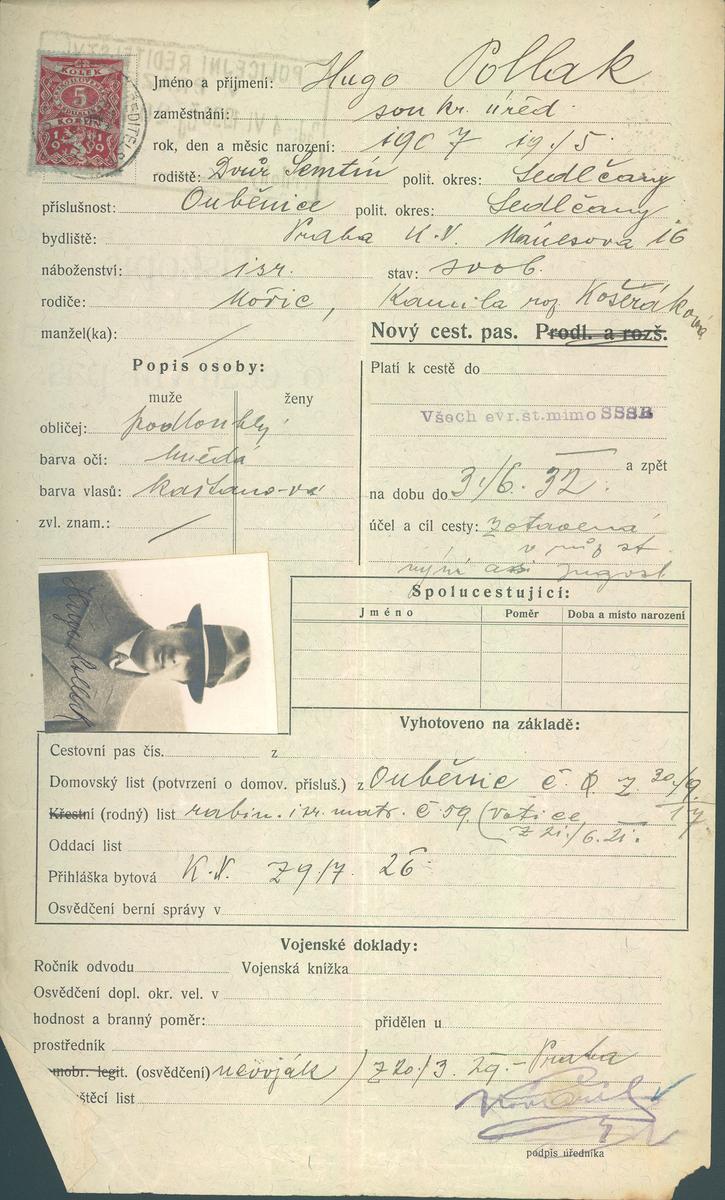 KOLEK
5
KORUN
1919
POLICEJNÍ ŘEDITELSTVÍ
Jméno a příjmení: Hugo Pollak
zaměstnání: soukr. úřed.
rok, den a měsíc narození: 1907 19./5.
rodiště: Dvůr Semtín polit. okres: Sedlčany
příslušnost: Ouběnice polit. okres: Sedlčany
bydliště: Praha K.V. Mánesova 16
náboženství: isr. stav: svob.
rodiče: Mořic, Kamila roz. Košeráková
manžel(ka): /
Nový cest. pas. Prodl. a rozš.
Popis osoby:
muže ženy
obličej: podlouhlý
barva očí: hnědá
barva vlasů: kaštanová
zvl. znam.: /
Platí k cestě do
Všech evr.st.mimo SSSR
a zpět
na dobu do 31/6. 32.
účel a cíl cesty: zotavená
nyní asi Jugosl
Hugo Pollak
Spolucestující:
Jméno Poměr Doba a místo narození
Vyhotoveno na základě:
Cestovní pas čís. z
Domovský list (potvrzení o domov. přísluš.) z Ouběnic č. Q z 30/9. 17
Křestní (rodný) list rabín. isr. matr. č 59 (Votice
z 21./6. 21.
Oddací list
Přihláška bytová K.V. z 9/7. 26
Osvědčení berní správy v
Vojenské doklady:
Ročník odvodu Vojenská knížka
Osvědčení dopl. okr. vel. v
hodnost a branný poměr: přidělen u
prostředník
mobr. legit. (osvědčení) nevoják) z 20/3. 29.- Praha
štěcí list
podpis úředníka